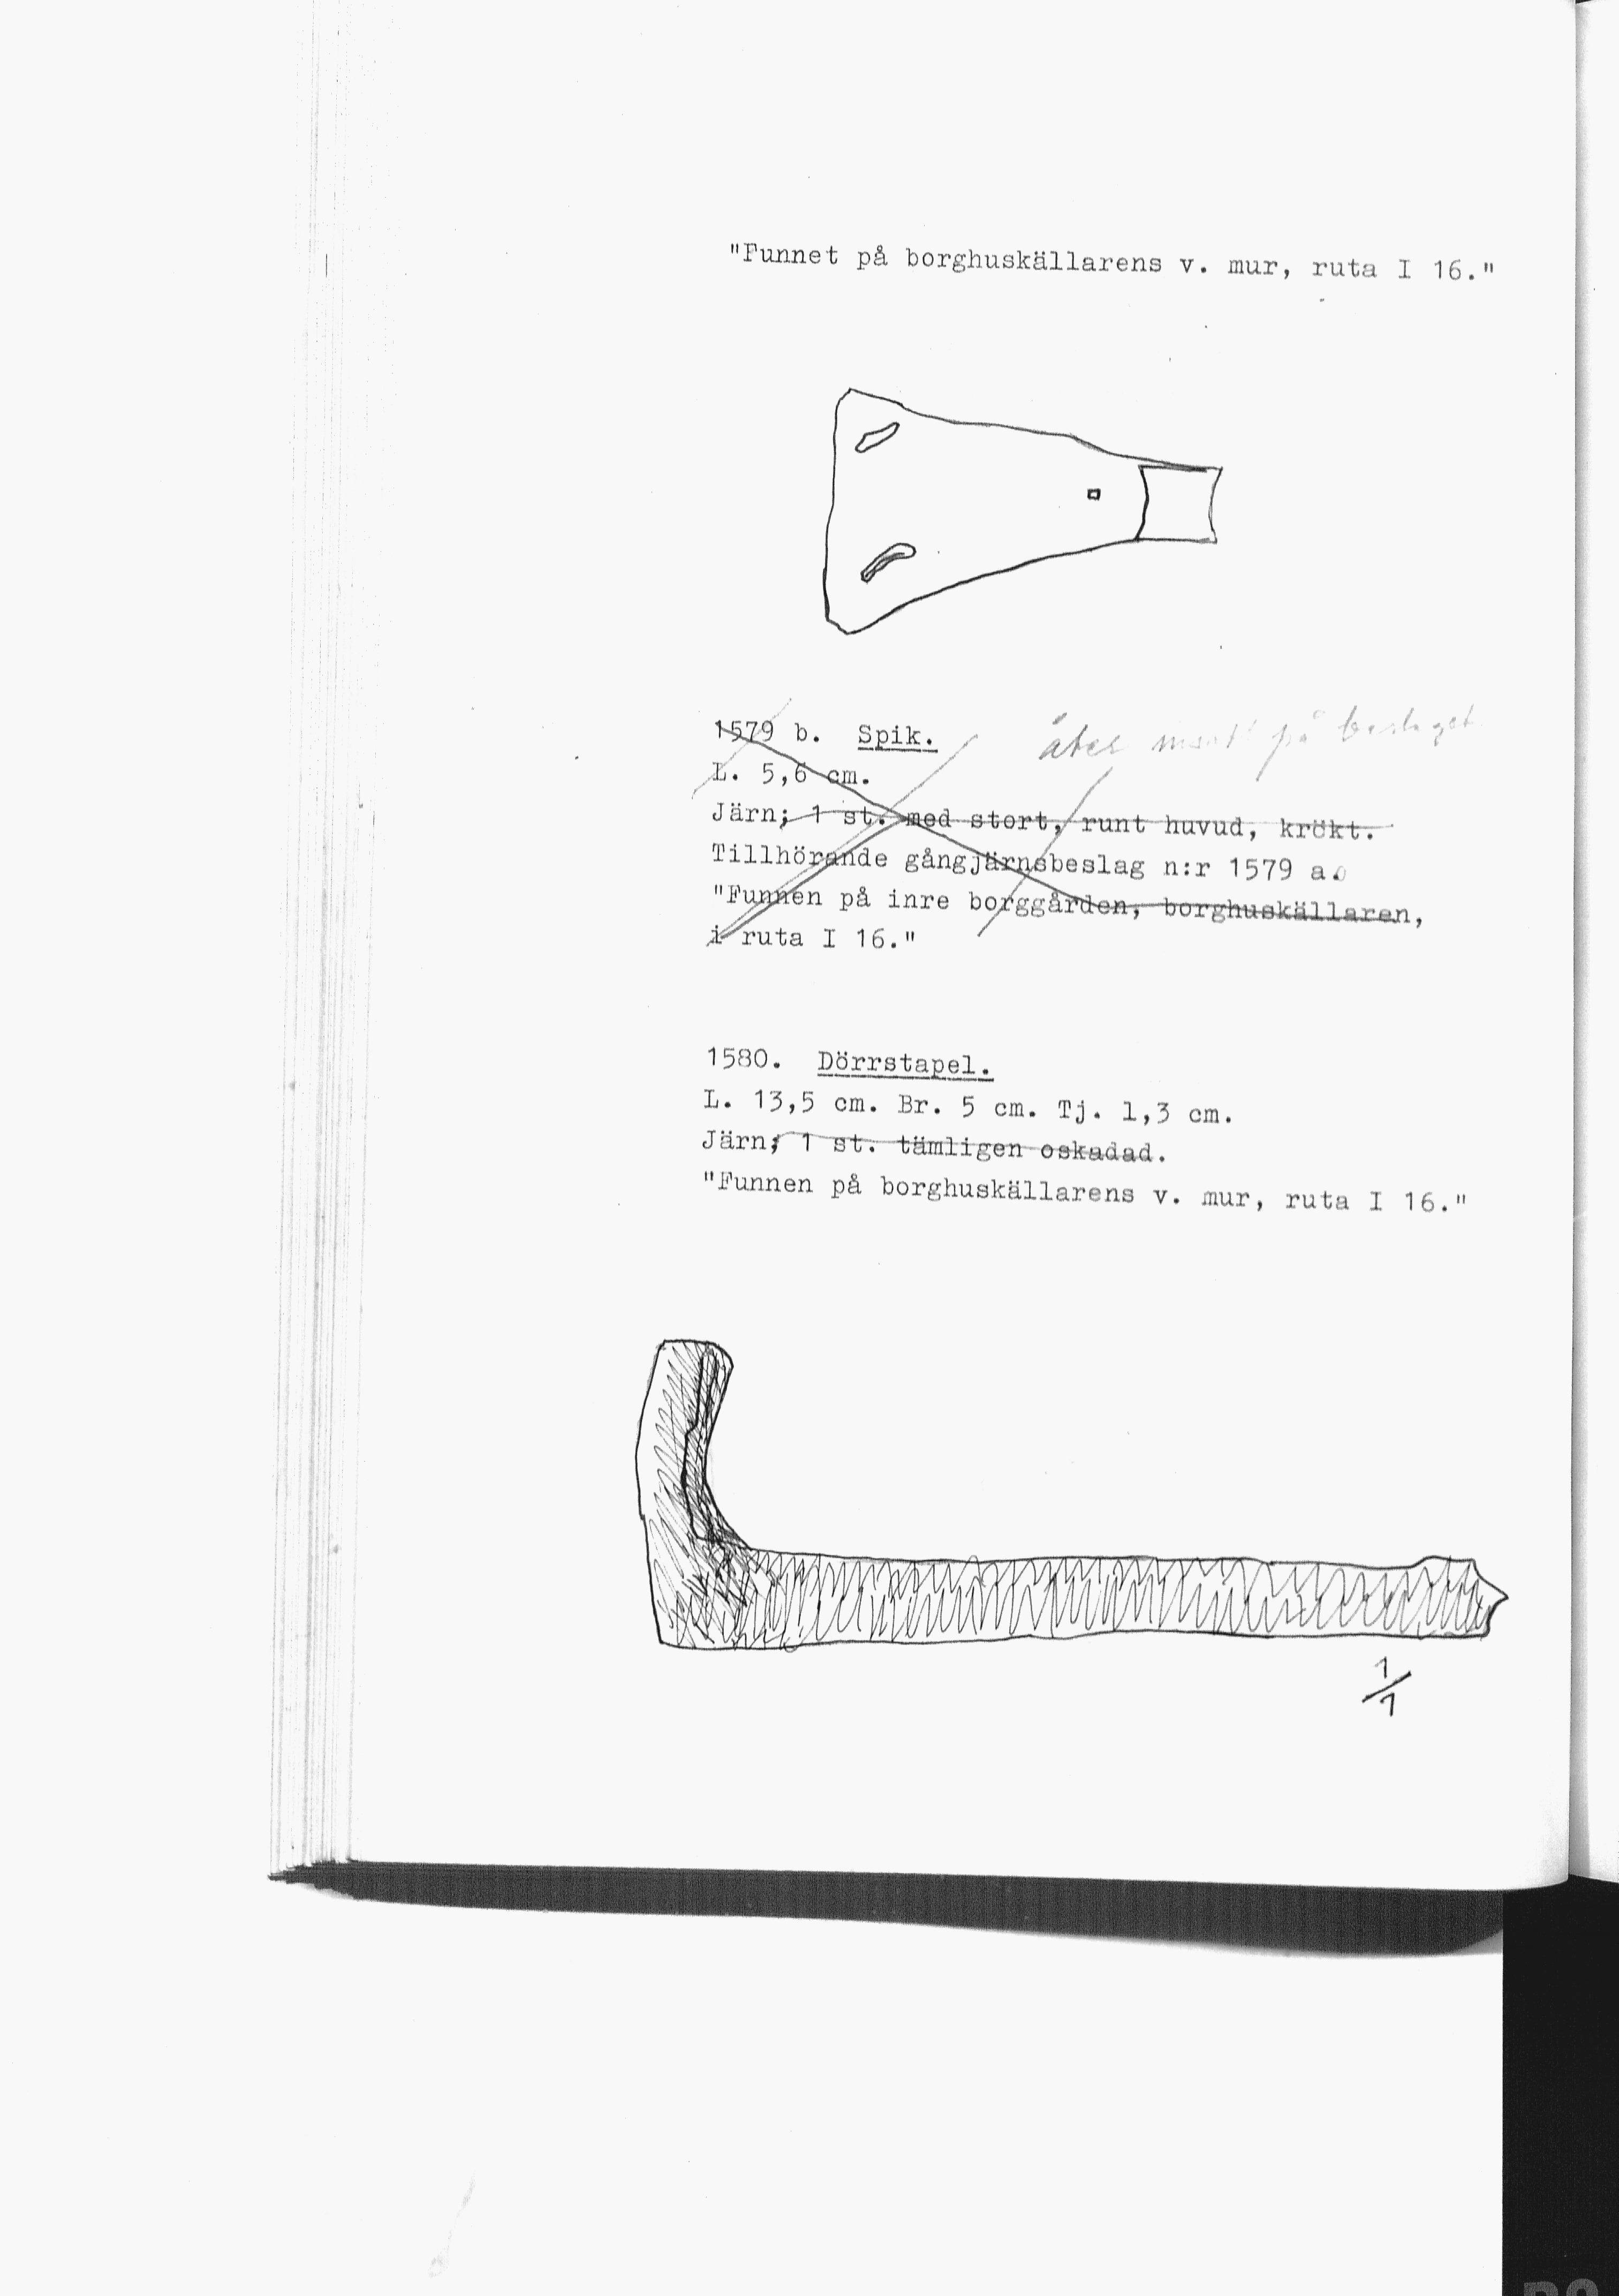 "Funnet på borghuskällarens v. mur, ruta I 16."
1579 b. Spik.
åter på beslaget
L. 5,6 cm.
Järn; 1 st. med stort, runt huvud, krökt.
Tillhörande gångjärnsbeslag n:r 1579 a.
"Funnen på inre borggården, borghuskällaren,
i ruta I 16."
1580. Dörrstapel.
L. 13,5 cm. Br. 5 cm. Tj. 1,3 cm.
Järn; 1 st. tämligen oskadad.
"Funnen på borghuskällarens v. mur, ruta I 16."
1/1